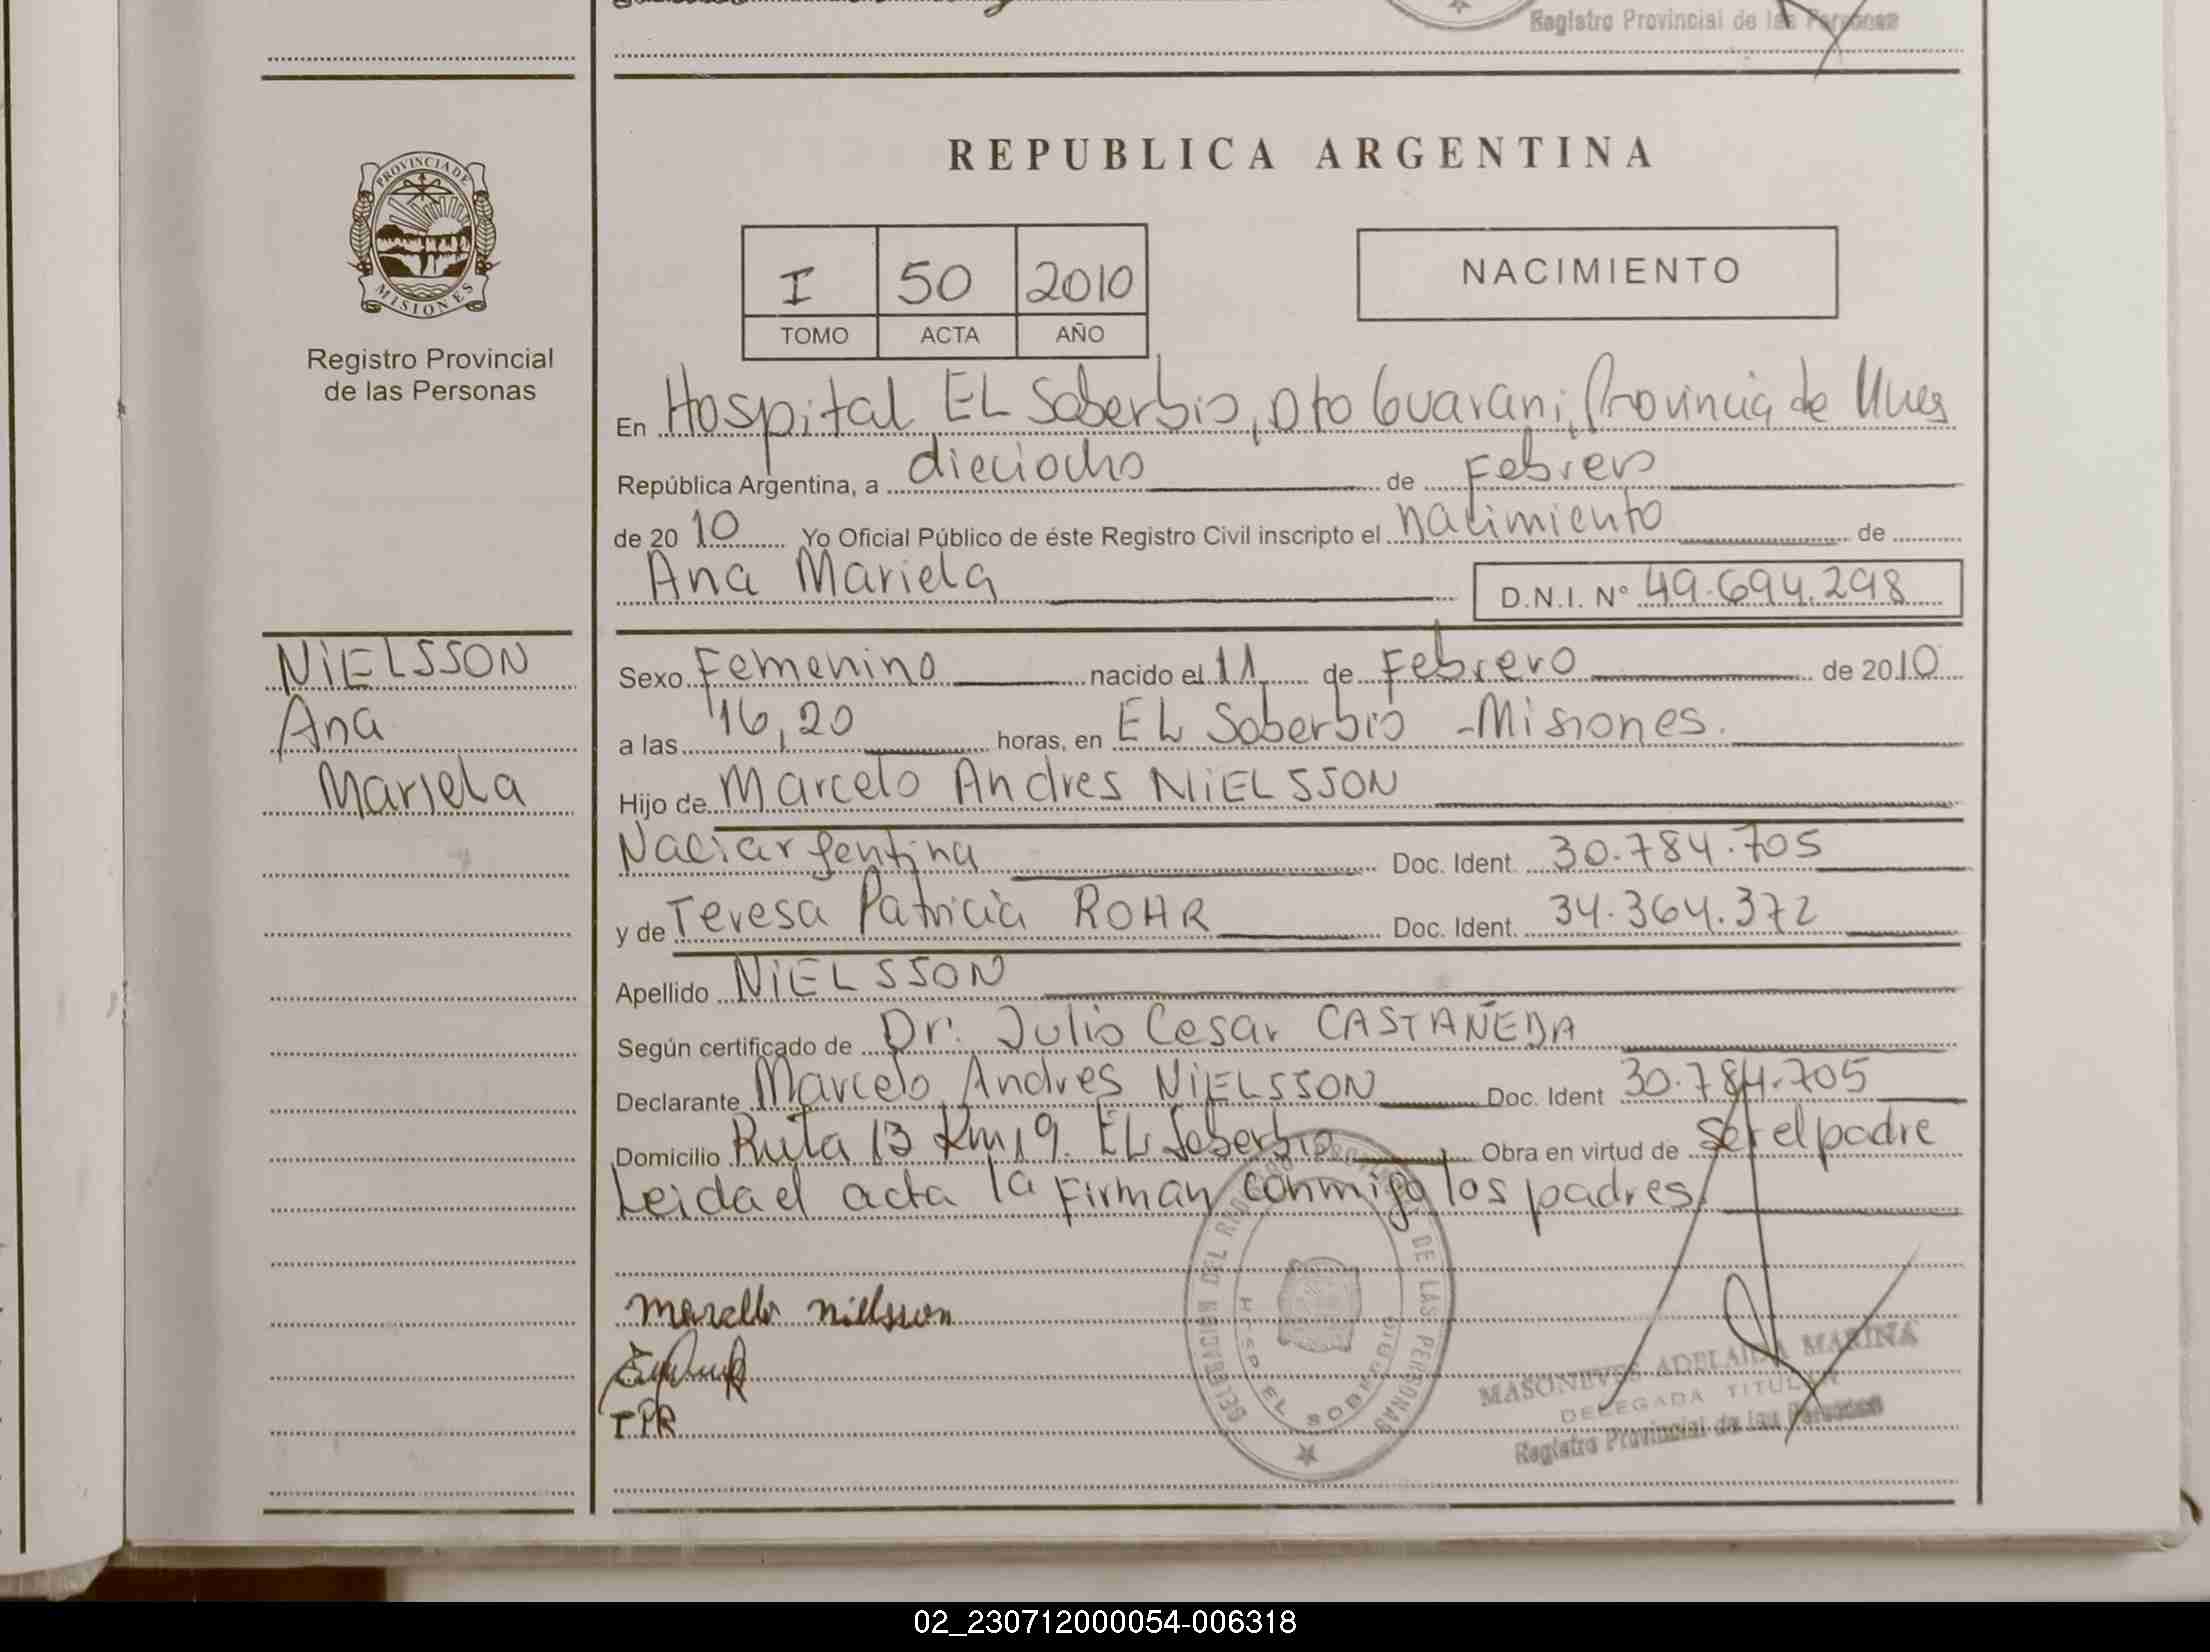 Registro Provincial de las Personas
PROVINCIA DE
MISIONES
Registro Provincial
de las Personas
REPUBLICA ARGENTINA
I 50 2010
TOMO ACTA AÑO
NACIMIENTO
En Hospital EL Soberbio, Dto Guarani, Provincia de Mnes
República Argentina, a dieciocho de Febrero
de 20 10 Yo Oficial Público de éste Registro Civil inscripto el nacimiento de
Ana Mariela D.N.I. Nº 49.694.298
NiELSSON
Ana
Mariela
Sexo Femenino nacido el 11 de Febrero de 2010
a las 16,20 horas, en EL Soberbio - Misiones.
Hijo de Marcelo Andres NiELSSON
Naciargentina Doc. Ident. 30.784.705
y de Teresa Patricia ROHR Doc. Ident. 34.364.372
Apellido NiELSSON
Según certificado de Dr. Julio Cesar CASTAÑEDA
Declarante Marcelo Andres NiELSSON Doc. Ident 30.784.705
Domicilio Ruta 13 Km 19. EL Soberbio Obra en virtud de ser el padre
Leida el acta la Firman conmigo los padres.
Marcelo Nielsson
TPR
DELEGACION DEL REGISTRO PROVINCIAL DE LAS PERSONAS
HOSP. EL SOBERBIO
MASONEVES ADELAIDA MARINA
DELEGADA TITULAR
Registro Provincial de las Personas
02_230712000054-006318